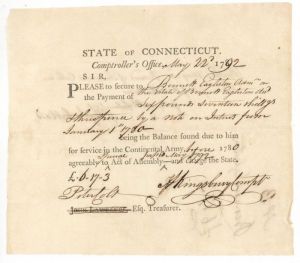 STATE OF CONNECTICUT.
Comptroller's Office, May 22d 1792
SIR,
PLEASE to secure to Bennett Eagleston Admr on
the Payment of the Estate of Eagleston decd
six pounds Seventeen shillgs
& three pence by a note on Interest from
January 1st 1780
being the Balance found due to him
for service in the Continental Army before 1780
agreeably to Act of Assembly and charge the State.
£ 6 . 17 . 3
Peter Colt
A Kingsbury Compt
JOHN LAWRENCE Esq. Treasurer.